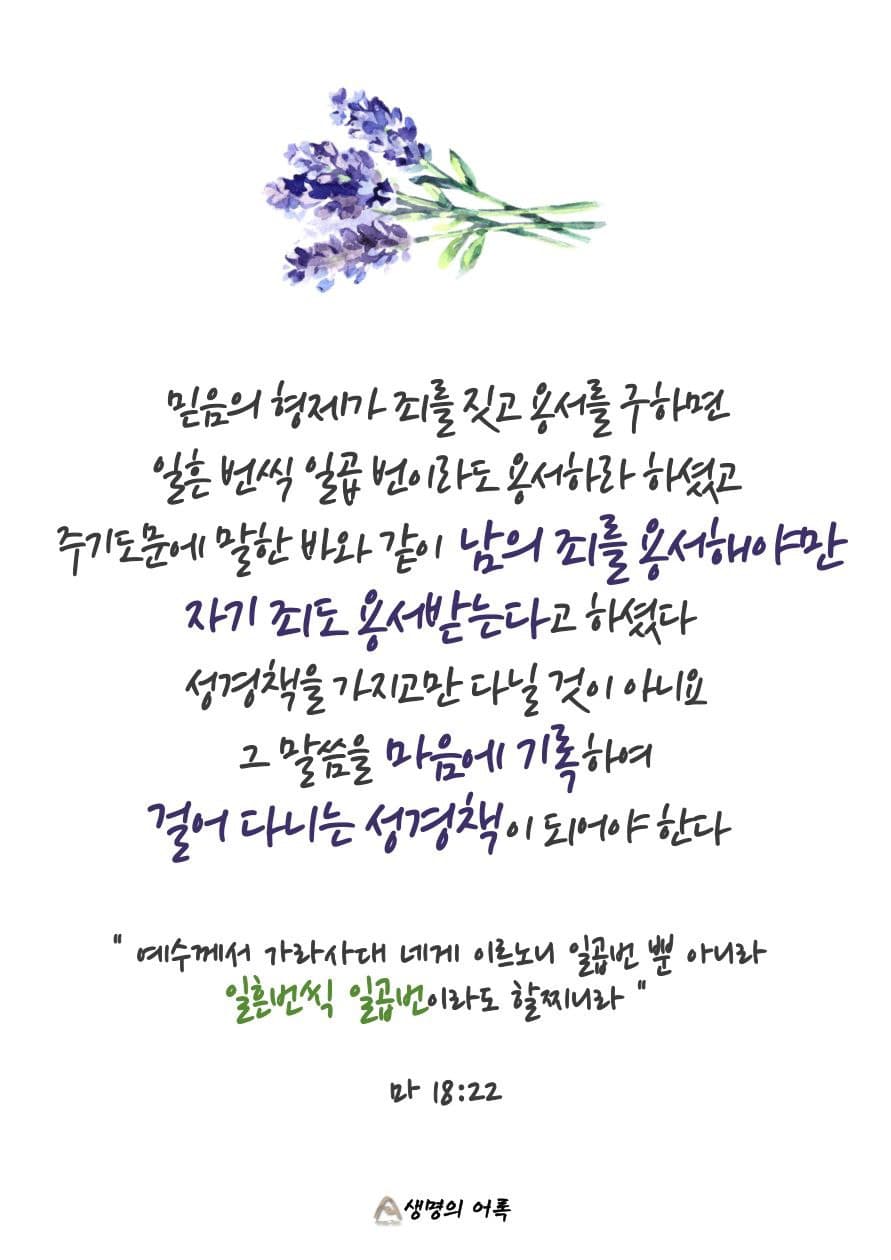 믿음의 형제가 죄를 짓고 용서를 구하면
일흔 번씩 일곱 번이라도 용서하라 하셨고
주기도문에 말한 바와 같이 남의 죄를 용서해야만
자기 죄도 용서받는다고 하셨다
성경책을 가지고만 다닐 것이 아니요
그 말씀을 마음에 기록하여
걸어 다니는 성경책이 되어야 한다
" 예수께서 가라사대 네게 이르노니 일곱번 뿐 아니라
일흔번씩 일곱번이라도 할찌니라 "
마 18:22
생명의 어록